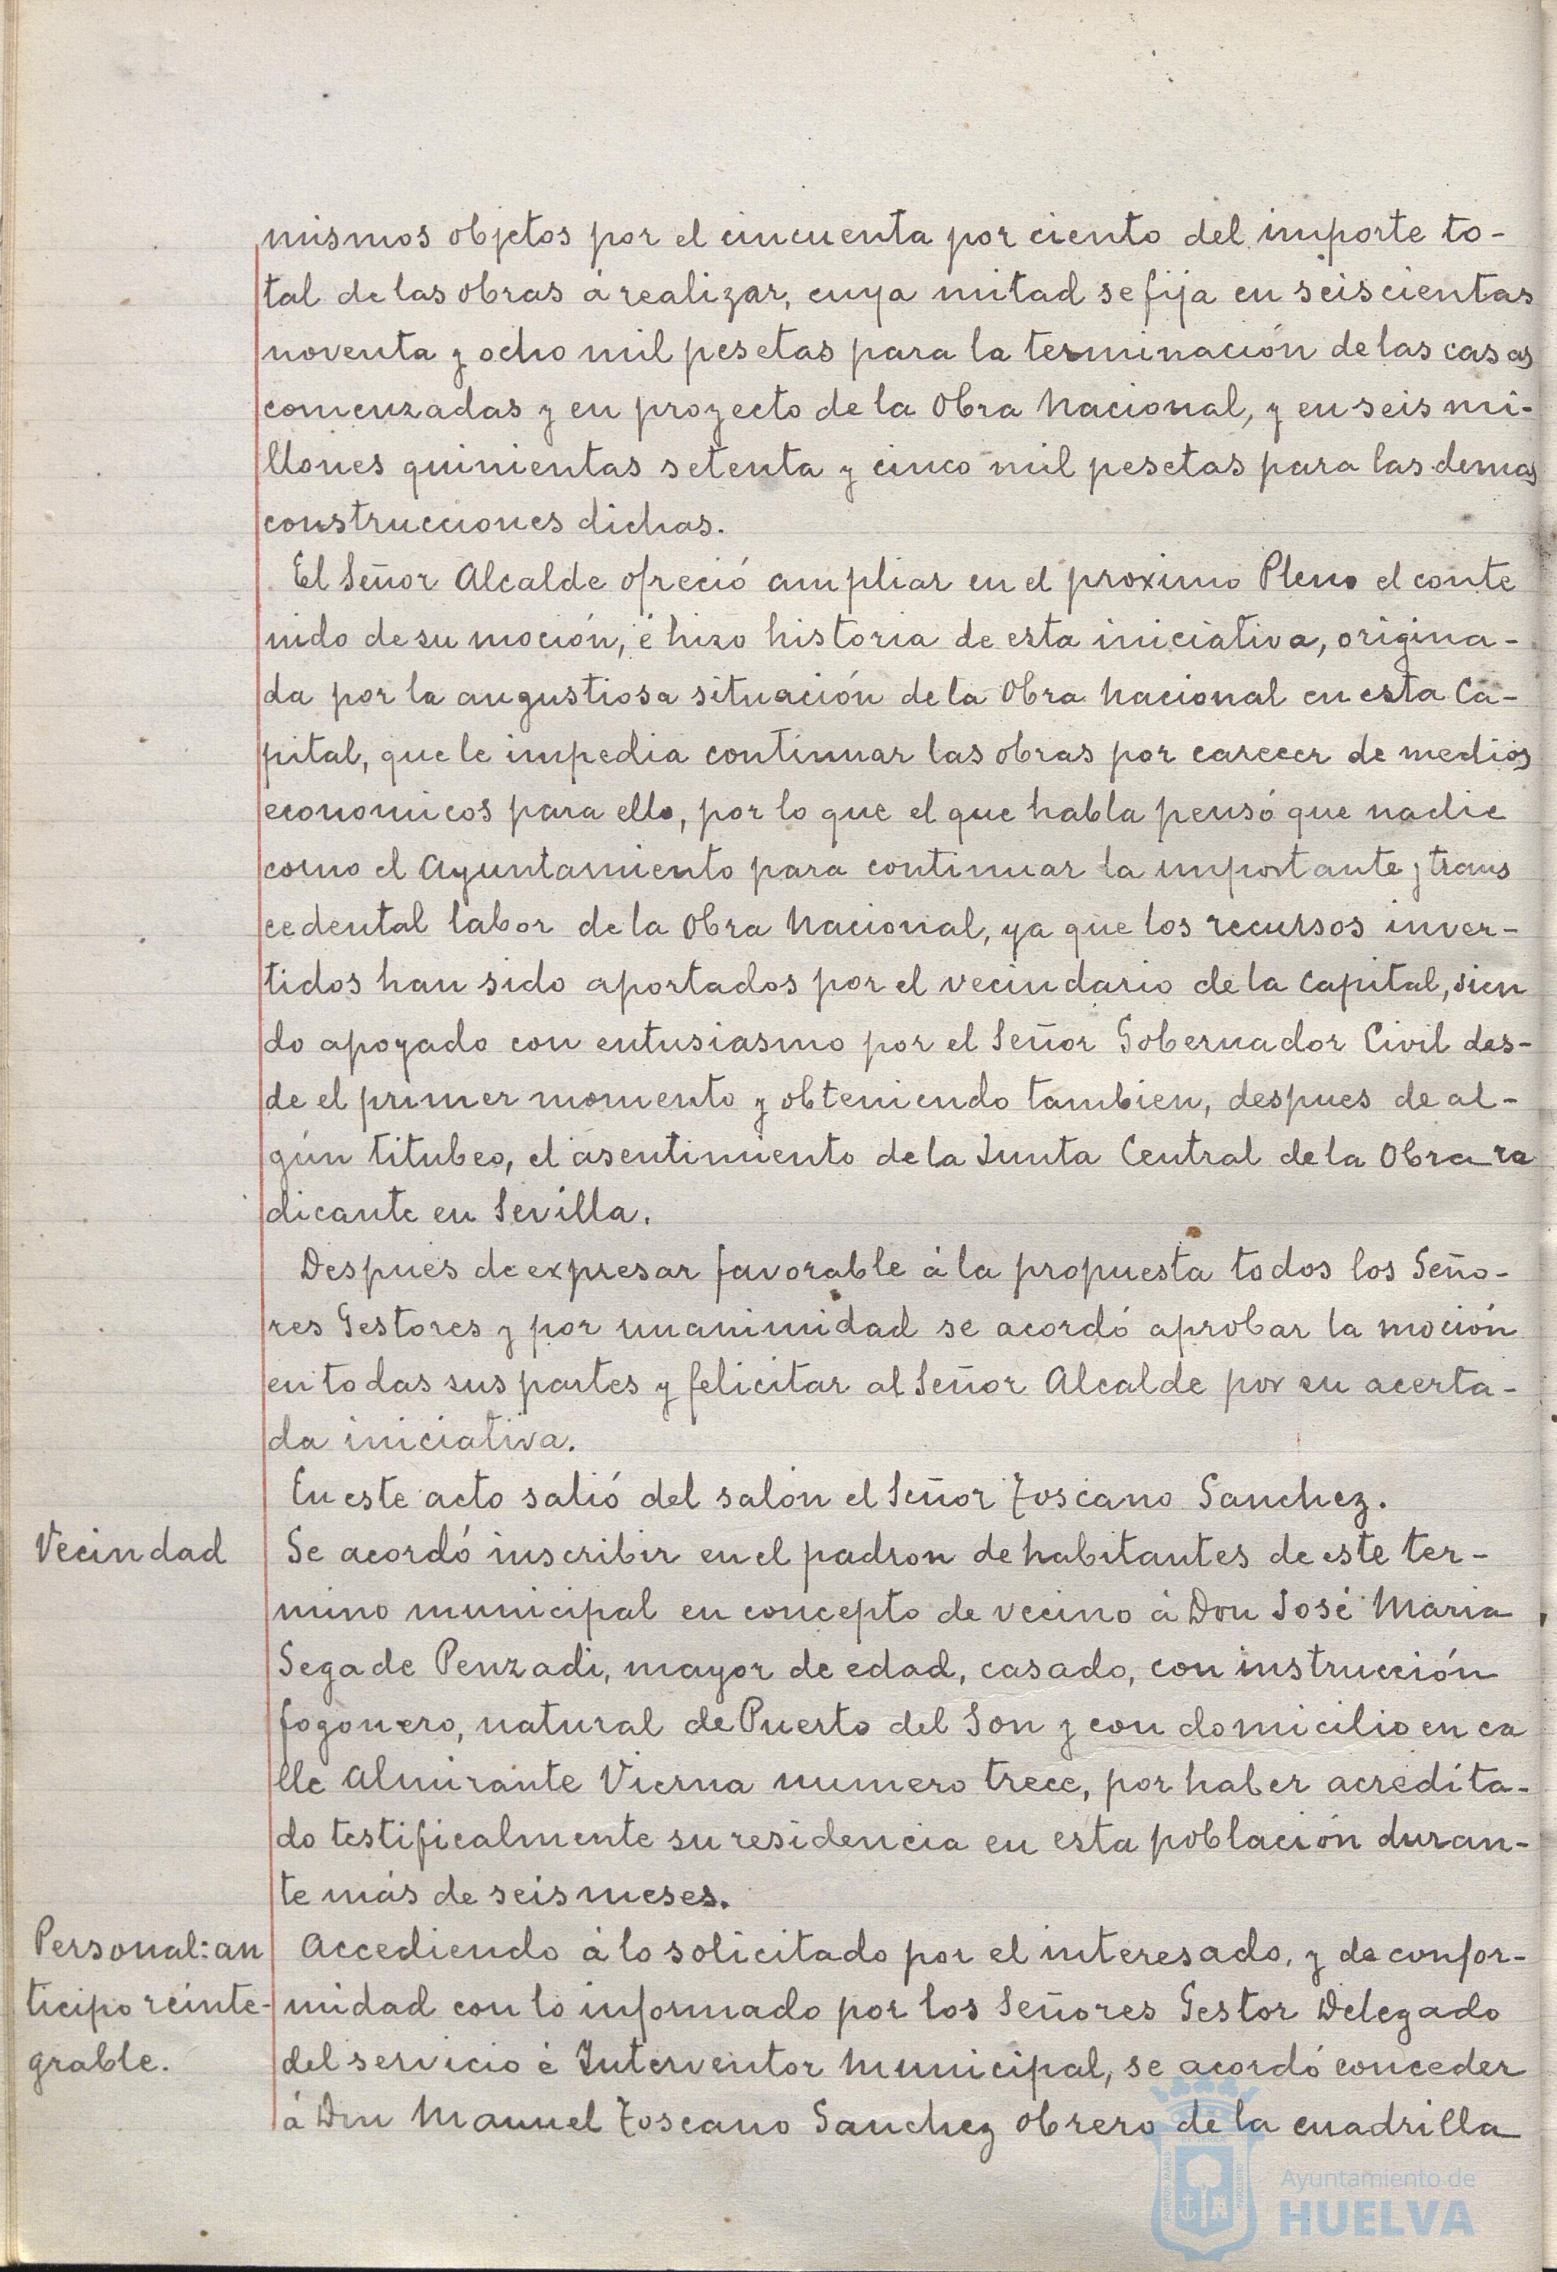 mismos objetos por el cincuenta por ciento del importe to-
tal de las obras á realizar, cuya mitad se fija en seiscientas
noventa y ocho mil pesetas para la terminación de las casas
comenzadas y en proyecto de la Obra Nacional, y en seis mi-
llones quinientas setenta y cinco mil pesetas para las demas
construcciones dichas.
El Señor Alcalde ofreció ampliar en el proximo Pleno el conte
nido de su moción, é hizo historia de esta iniciativa, origina-
da por la angustiosa situación de la Obra Nacional en esta Ca-
pital, que le impedia continuar las obras por carecer de medios
economicos para ello, por lo que el que habla pensó que nadie
como el Ayuntamiento para continuar la importante y trans
cedental labor de la Obra Nacional, ya que los recursos inver-
tidos han sido aportados por el vecindario de la Capital, sien
do apoyado con entusiasmo por el Señor Gobernador Civil des-
de el primer momento y obteniendo tambien, despues de al-
gún titubeo, el asentimiento de la Junta Central de la Obra ra
dicante en Sevilla.
Despues de expresar favorable á la propuesta todos los Seño-
res Gestores y por unanimidad se acordó aprobar la moción
en todas sus partes y felicitar al Señor Alcalde por su acerta-
da iniciativa.
En este acto salió del salón el Señor Toscano Sanchez.
Vecindad
Se acordó inscribir en el padron de habitantes de este ter-
mino municipal en concepto de vecino á Don José Maria
Segade Penzadi, mayor de edad, casado, con instrucción
fogonero, natural de Puerto del Son y con domicilio en ca
lle Almirante Vierna numero trece, por haber acredita-
do testificalmente su residencia en esta población duran-
te más de seis meses.
Personal: an
ticipo reinte-
grable.
Accediendo á lo solicitado por el interesado, y de confor-
midad con lo informado por los Señores Gestor Delegado
del servicio é Interventor Municipal, se acordó conceder
á Don Manuel Toscano Sanchez obrero de la cuadrilla
Ayuntamiento de
HUELVA